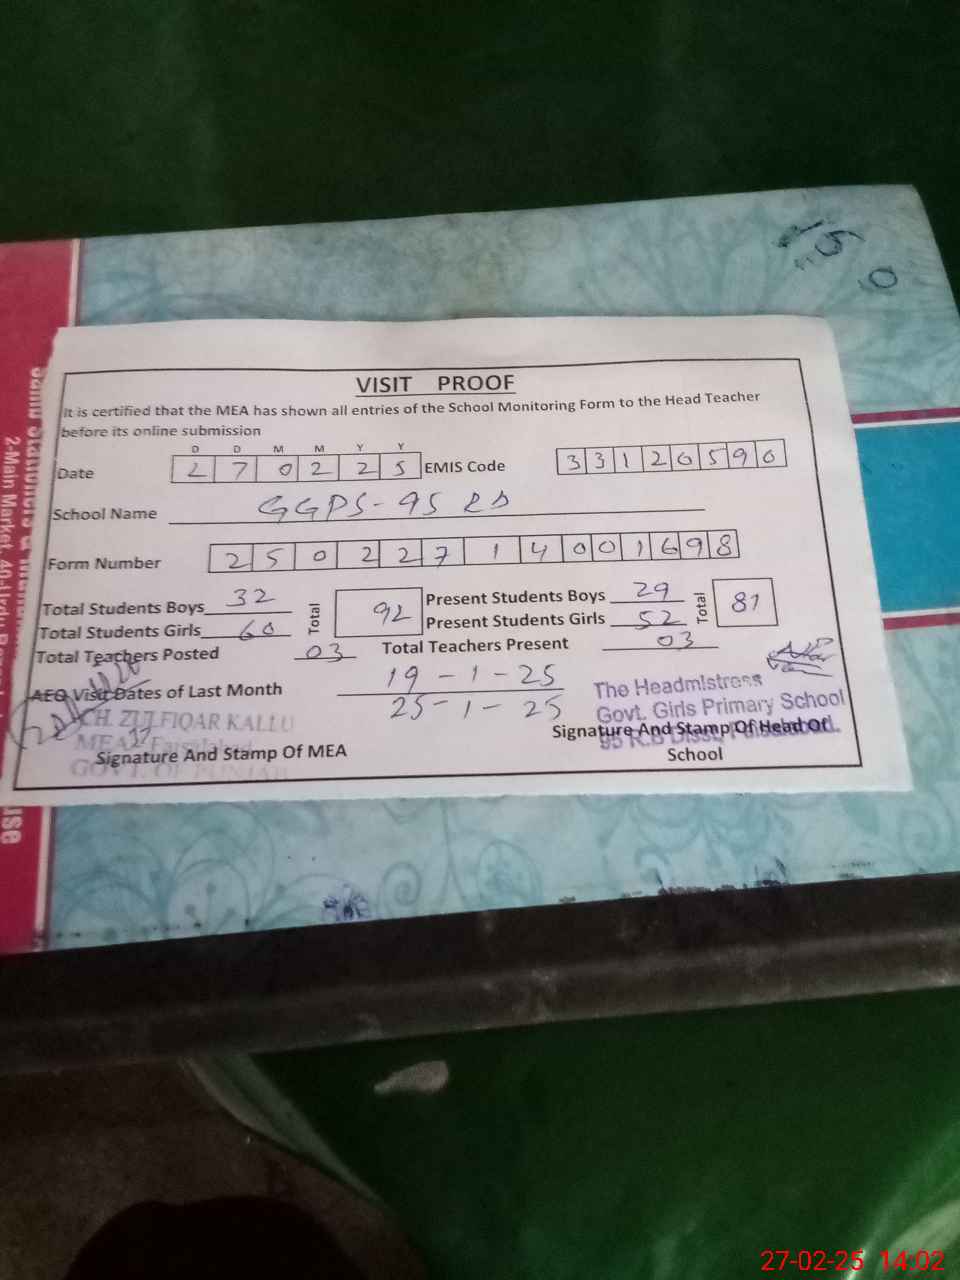 VISIT PROOF
It is certified that the MEA has shown all entries of the School Monitoring Form to the Head Teacher
before its online submission
D D M M Y Y
Date 2 7 0 2 2 5 EMIS Code 3 3 1 2 6 5 9 0
School Name GGPS-95 RB
Form Number 2 5 0 2 2 7 1 4 0 0 1 6 9 8
Total Students Boys 32 Total 92 Present Students Boys 29 Total 81
Total Students Girls 60 Present Students Girls 52
Total Teachers Posted 03 Total Teachers Present 03
AEO Visit Dates of Last Month 19-1-25
25-1-25
The Headmistress
Govt. Girls Primary School
95 R.B
CH. ZULFIQAR KALLU
MEA 37
GOVT. OF PUNJAB
Signature And Stamp Of MEA
Signature And Stamp Of Head Of
School
2-Main Market,
27-02-25 14:02